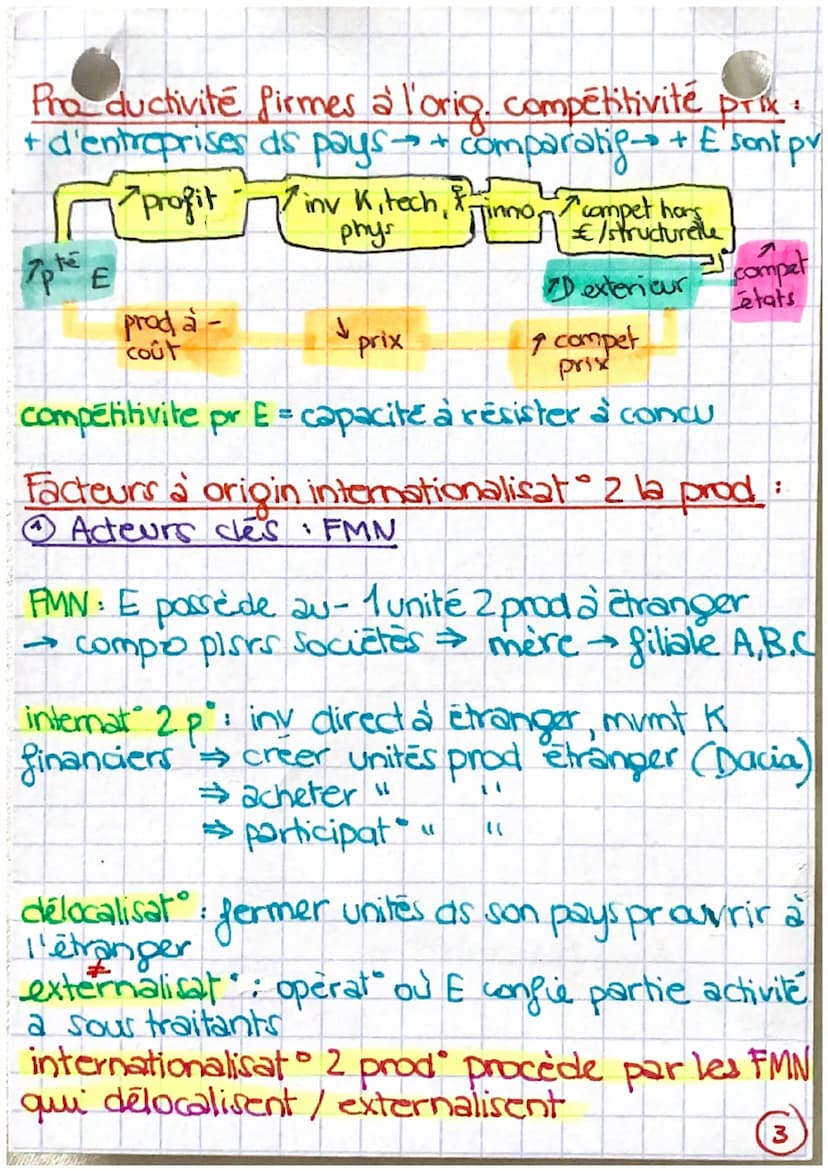 Productivité firmes à l'orig. compétitivité prix :
+ d'entreprises ds pays → + comparatif → + E sont pv
↗ profit
↗ inv K, tech, phys
inno
↗ compet hors £/structurelle
↗ pté E
↗ D exterieur
↗ compet états
prod à - coût
↓ prix
↑ compet prix
compétitivite pr E = capacité à résister à concu
Facteurs à origin internationalisat° 2 la prod :
① Acteurs clés : FMN
FMN : E possède au - 1 unité 2 prod à étranger
→ compo plsrs sociétés ⇒ mère → filiale A,B,C
internat° 2 p° : inv direct à étranger, mvmt K
financiers ⇒ créer unités prod étranger (Dacia)
⇒ acheter " "
⇒ participat° " "
délocalisat° : fermer unités ds son pays pr ouvrir à
l'étranger
≠
externalisat° : opérat° où E confie partie activité
à sous traitants
internationalisat° 2 prod° procède par les FMN
qui délocalisent / externalisent
3